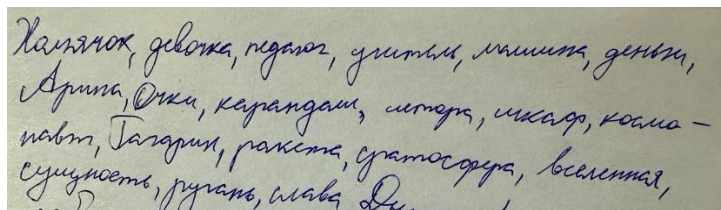 Хомячок, девочка, педагог, учитель, машина, деньги,
Арина, Очки, карандаш, штора, шкаф, космо-
навт, Гагарин, ракета, стратосфера, вселенная,
сущность, ругань, слава